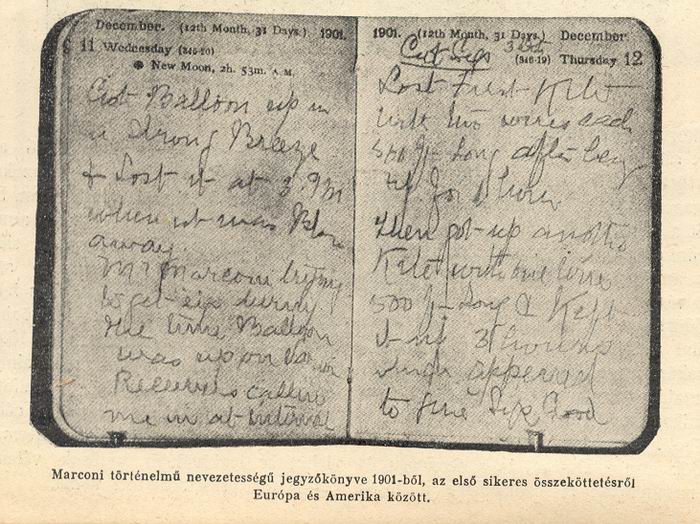 December. (12th Month, 31 Days.) 1901.
11 Wednesday (345-20)
New Moon, 2h. 53m. A.M.
Got Balloon up in
a Strong Breeze
& Lost it at 3. PM
when it was Blown
away.
Mr Marconi trying
to get sigs during
the time Balloon
was up on
Receivers calling
me in at interval
1901. (12th Month, 31 Days.) December.
Sigs
(346-19) Thursday 12
Lost First Kite
with two wires each
500 ft Long after being
up for 1 hour
then got up another
Kite with one wire
500 ft Long & Kept
it up 3 hours
which appeared
to give Sigs Good
Marconi történelmű nevezetességű jegyzőkönyve 1901-ből, az első sikeres összeköttetésről
Európa és Amerika között.